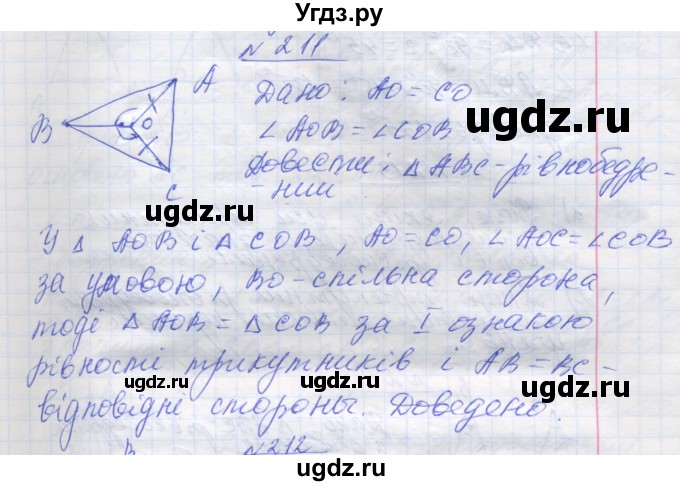 Угдз.ру
№ 211
A
Дано: AO = CO
B
O
∠AOB = ∠COB
Довести: △ABC - рівнобедре-
C
- ний
У △ AOB і △ COB, AO = CO, ∠ AOC = ∠ COB
за умовою, BO - спільна сторона,
тоді △ AOB = △ COB за I ознакою
рівності трикутників і AB = BC -
відповідні стороны. Доведено.
B
№ 212
ugdz.ru
ugdz.ru
ugdz.ru
ugdz.ru
ugdz.ru
ugdz.ru
ugdz.ru
ugdz.ru
ugdz.ru